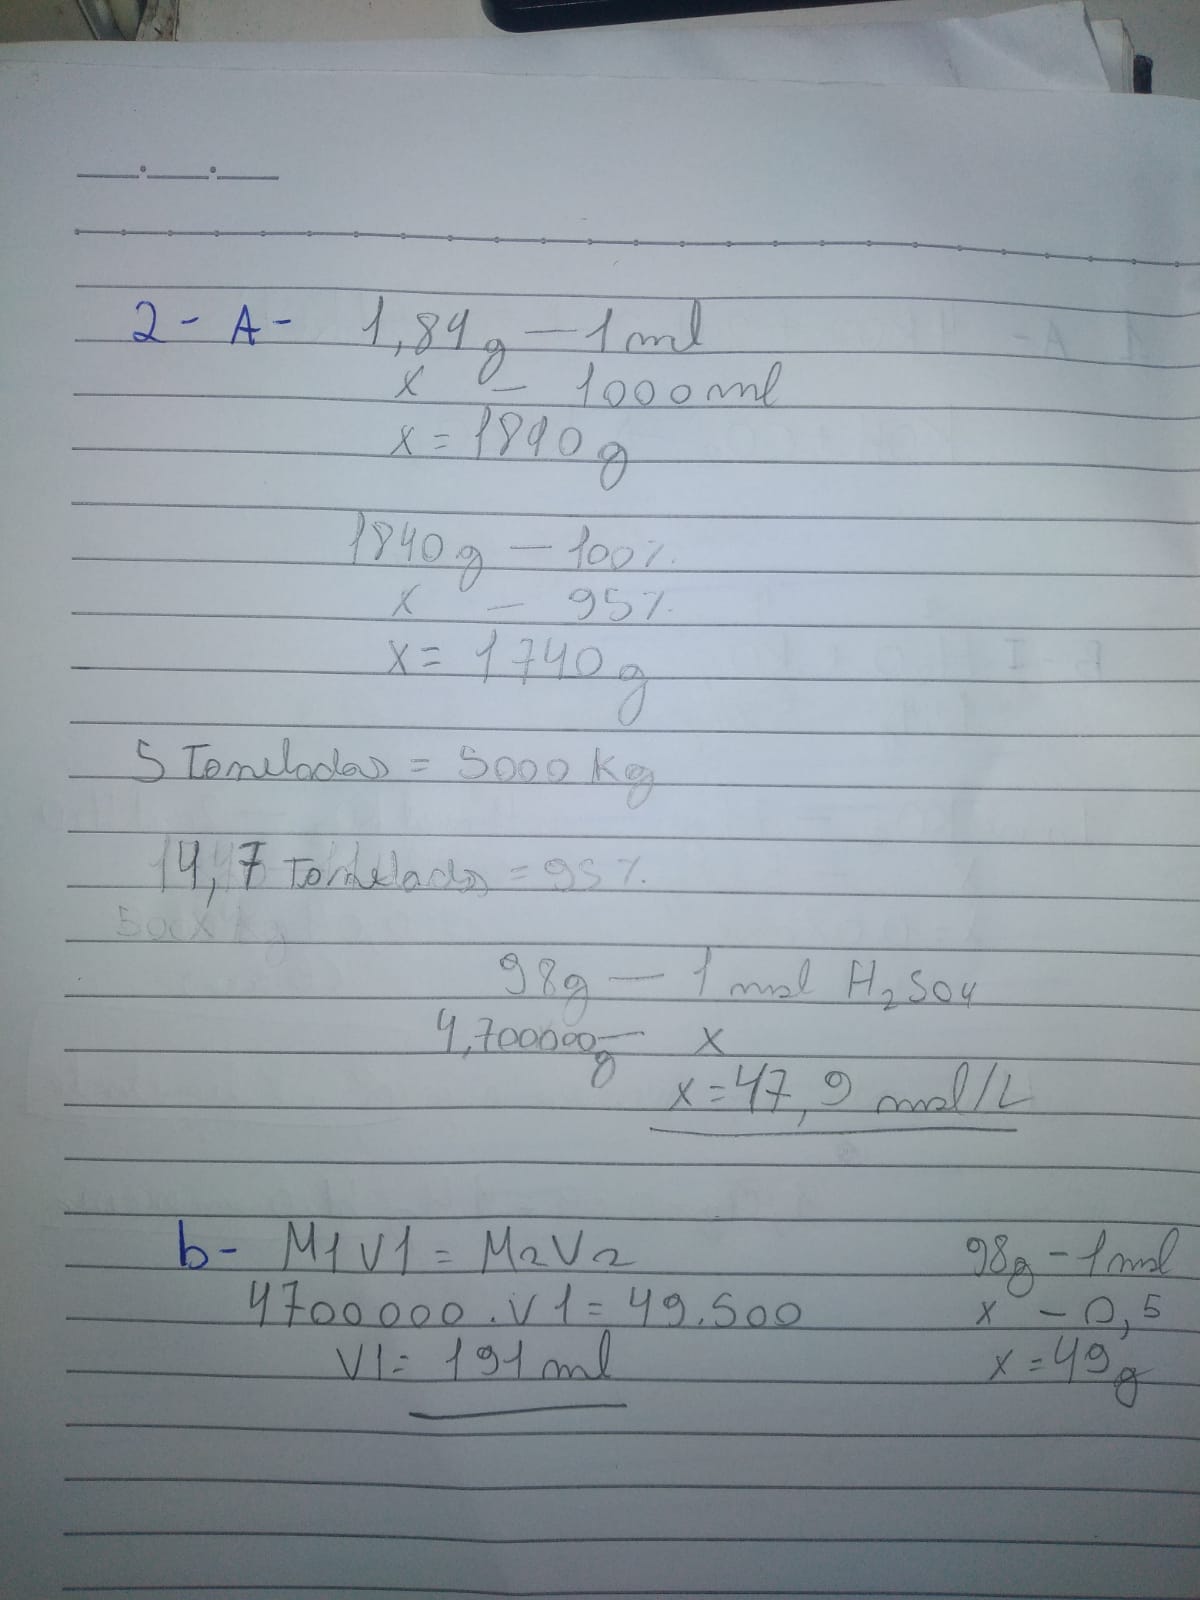 2 - A - 1,84g — 1 ml
x — 1000 ml
x = 1840 g
1840 g — 100 %
x — 95 %
x = 1740 g
5 Toneladas = 5000 Kg
14,7 Toneladas = 95 %
98g — 1 mol H2SO4
4,700000g — x
x = 47,9 mol/L
b - M1V1 = M2V2
4700000 . V1 = 49.500
V1 = 191 ml
98g - 1 mol
x - 0,5
x = 49 g